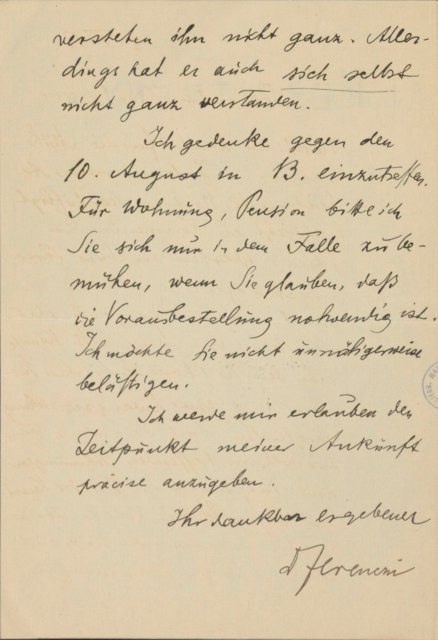 verstehen ihn nicht ganz. Aller-
dings hat er auch sich selbst
nicht ganz verstanden.
Ich gedenke gegen den
10. August in B. einzutreffen.
Für Wohnung, Pension bitte ich
Sie sich nur in dem Falle zu be-
mühen, wenn Sie glauben, daß
die Vorausbestellung notwendig ist.
Ich möchte Sie nicht unnötigerweise
belästigen.
Ich werde mir erlauben den
Zeitpunkt meiner Ankunft
präcise anzugeben.
Ihr dankbar ergebener
D Ferenczi